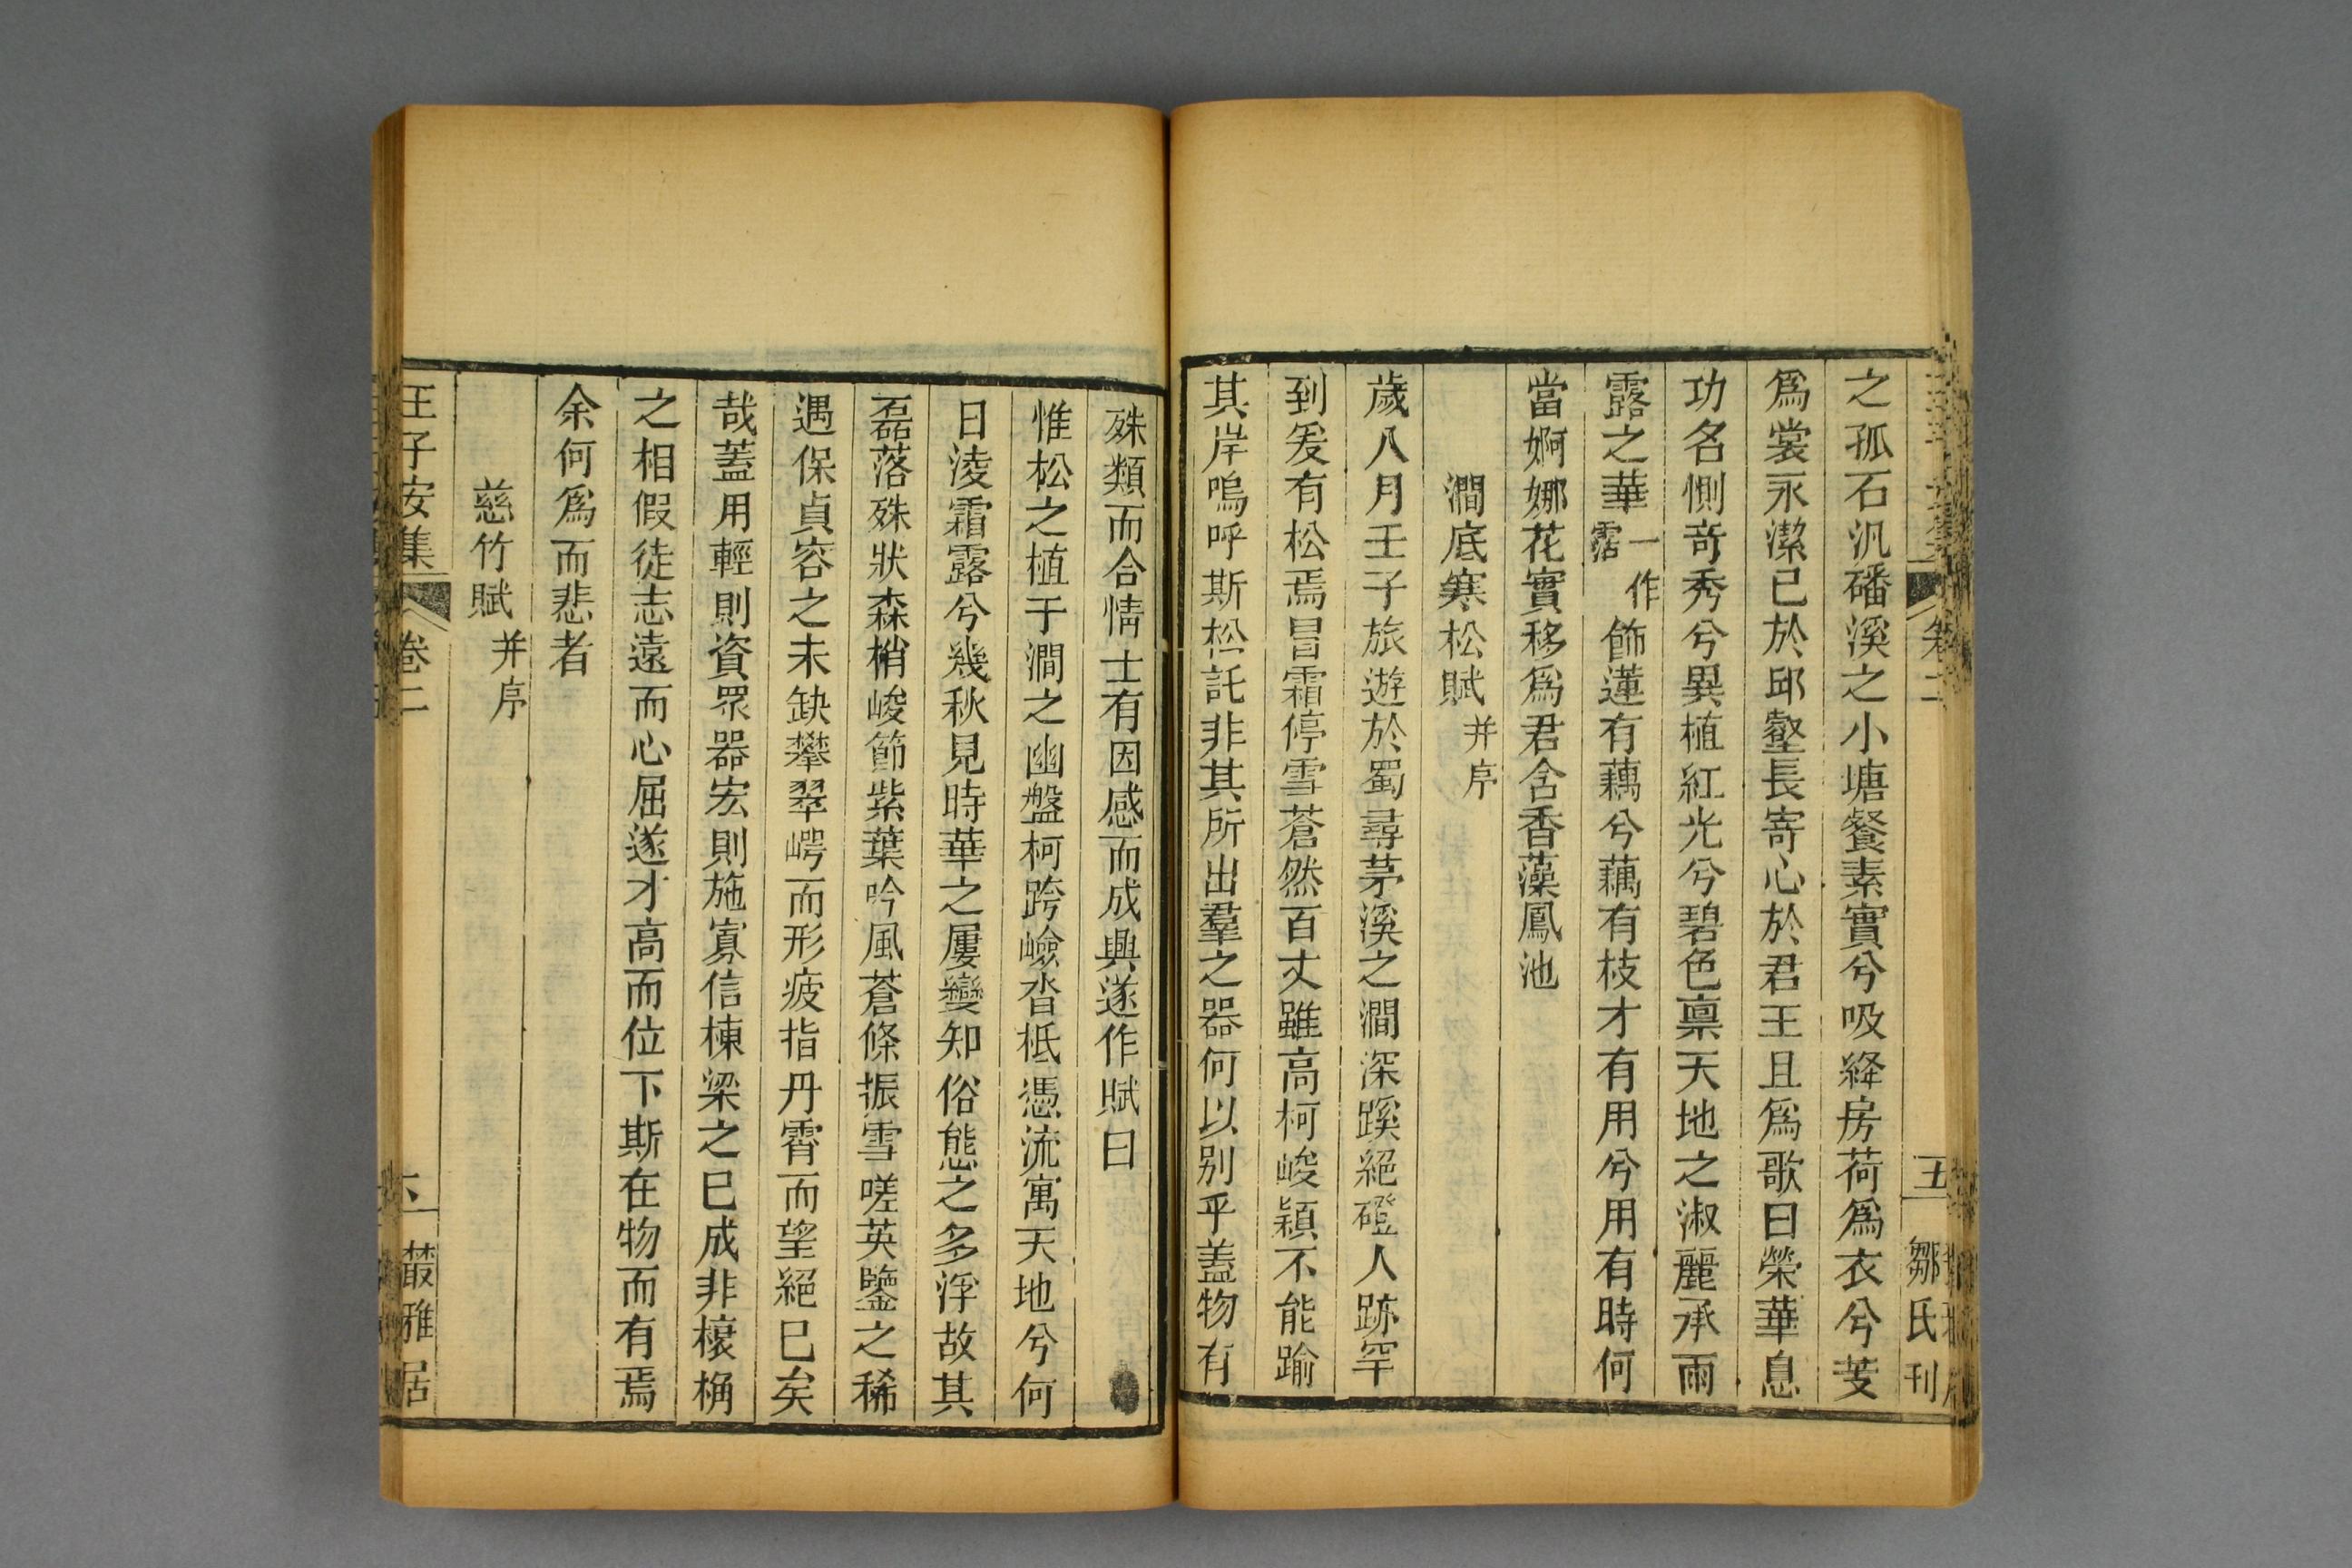 卷二
五
鄒氏刊
之孤石汎磻溪之小塘餐素實兮吸絳房荷爲衣兮芰
爲裳永潔已於邱壑長寄心於君王且爲歌曰榮華息
功名惻奇秀兮異植紅光兮碧色稟天地之淑麗承雨
露之華一作霑飾蓮有藕兮藕有枝才有用兮用有時何
當婀娜花實移爲君含香藻鳳池
澗底寒松賦并序
歲八月壬子旅遊於蜀尋茅溪之澗深蹊絕磴人跡罕
到爰有松焉冒霜停雪蒼然百丈雖高柯峻穎不能踰
其岸嗚呼斯松託非其所出羣之器何以別乎蓋物有
殊類而合情士有因感而成興遂作賦曰
惟松之植于澗之幽盤柯跨嶮沓柢憑流寓天地兮何
日淩霜露兮幾秋見時華之屢變知俗態之多浮故其
磊落殊狀森梢峻節紫葉吟風蒼條振雪嗟英鑒之稀
遇保貞容之未缺攀翠崿而形疲指丹霄而望絕已矣
哉蓋用輕則資眾器宏則施寡信棟梁之已成非榱桷
之相假徒志遠而心屈遂才高而位下斯在物而有焉
余何爲而悲者
慈竹賦并序
王子安集
卷二
叢雅居